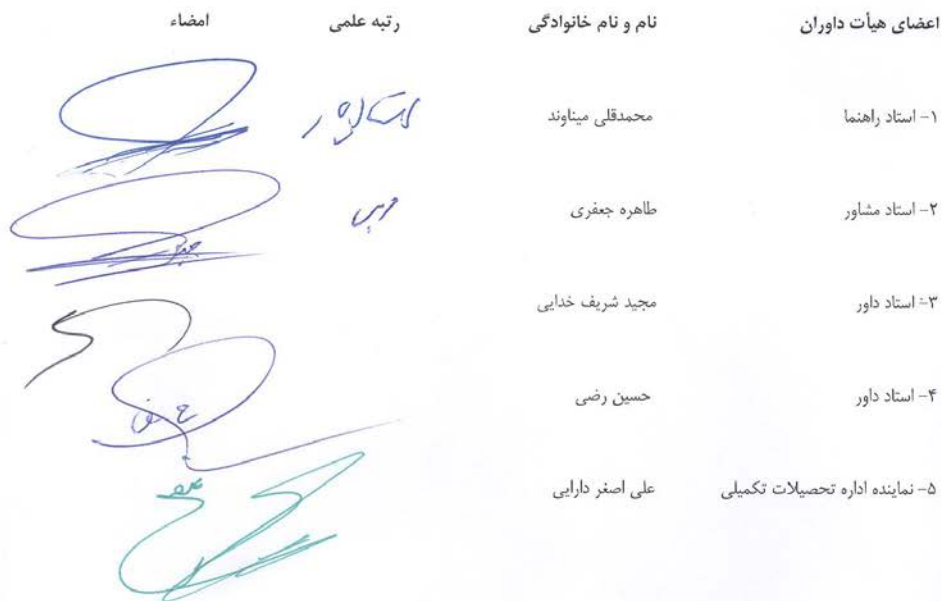 اعضای هیأت داوران نام و نام خانوادگی رتبه علمی امضاء
۱- استاد راهنما محمدقلی میناوند استادیار
۲- استاد مشاور طاهره جعفری مربی
۳- استاد داور مجید شریف خدایی
۴- استاد داور حسین رضی
۵- نماینده اداره تحصیلات تکمیلی علی اصغر دارایی